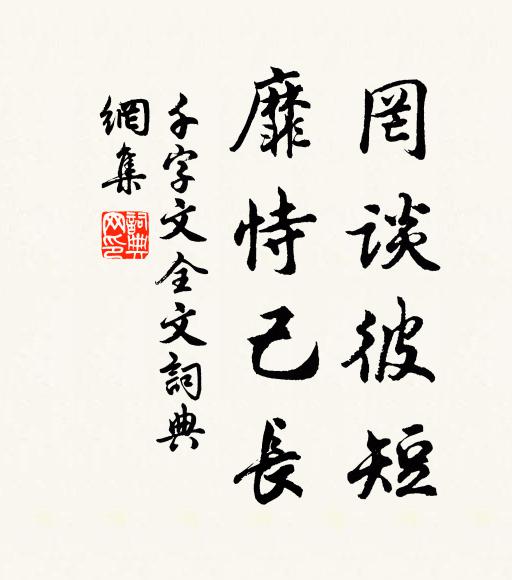 罔談彼短
靡恃己長
千字文全文詞典
網集
詞典网印